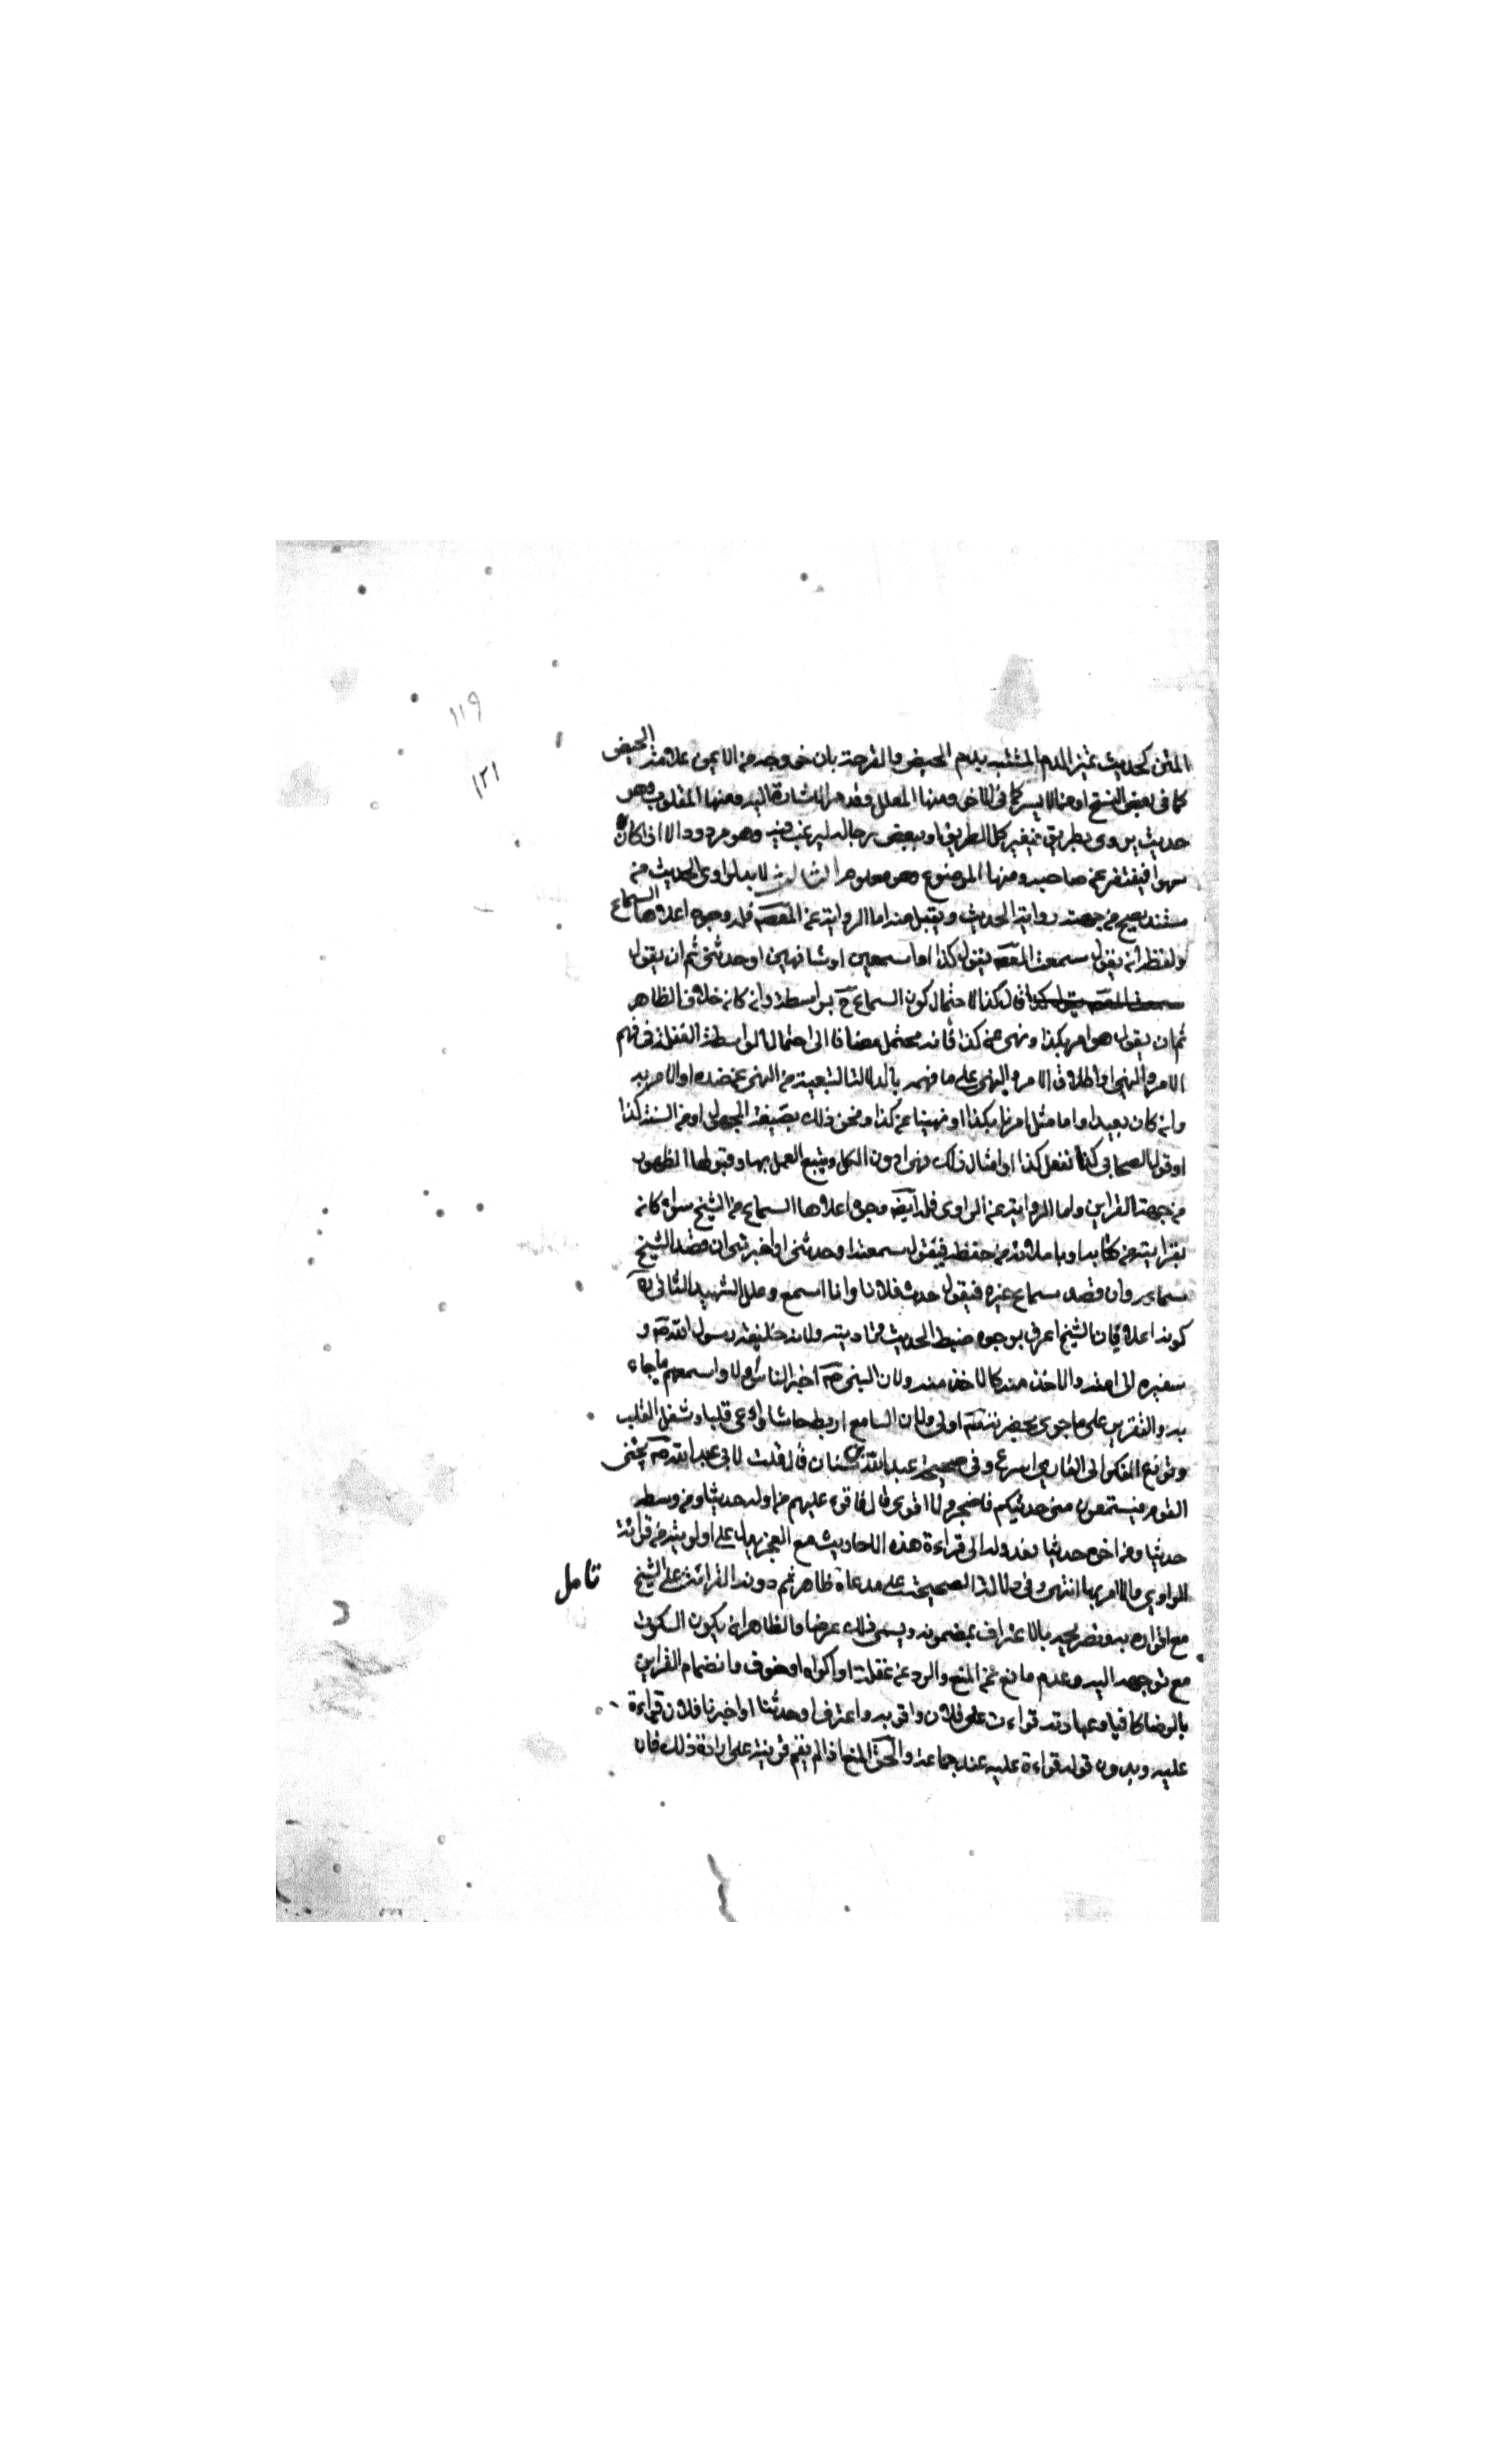 ١١٩
١٢١
المتن كحديث تميز الدم المشتبه بدم الحيض والقرحة بان خروجه من الايمن علامة الحيض
كما في بعض النسخ او من الايسر كما في الاخر ومنها المعلل وقد مر الاشارة اليه ومنها المقلوب وهو
حديث يروى بطريق فيغير كل الطريق او بعض رجاله ليرغب فيه وهو مردود الا اذا كان
سهوا فيغتفر عن صاحبه ومنها الموضوع وهو معلوم الثالث لا بد لراوى الحديث من
مستند يصح من جهته رواية الحديث ويقبل منه اما الرواية عن المعصم فله وجوه اعلاها السماع
ولفظه ان يقول سمعت المعصم يقول كذا او اسمعني او شافهني او حدثني ثم ان يقول
قال كذا لاحتمال كون السماع ح بواسطة وان كان خلاف الظاهر
ثم ان يقول هو امر بكذا ونهى عن كذا فانه محتمل مضافا الى احتمال الواسطة الغفلة في فهم
الامر والنهي او اطلاق الامر والنهي على ما فهمه بالدلالة التبعية من النهي عن ضده او الامر به
وان كان بعيدا واما مثل امرنا بكذا او نهينا عن كذا ونحو ذلك بصيغة المجهول او من السنة كذا
او قول الصحابي كنا نفعل كذا او امثال ذلك فهو ادون الكل ويتبع العمل بها وقبولها الظهور
من جهة القراين واما الرواية عن الراوى فله ايضه وجوه اعلاها السماع من الشيخ سواء كان
بقرائته من كتابه او باملائه من حفظه فيقول سمعته او حدثني او اخبرني ان قصد الشيخ
سماعه وان قصد سماع غيره فيقول حدث فلانا وانا اسمع وعلل الشهيد الثاني ره
كونه اعلا فان الشيخ اعرف بوجوه ضبط الحديث وتاديته ولانه خليفة رسول الله ص و
سفيره الى امته والاخذ منه كالاخذ منه ولان النبي ص اخبر الناس اولا واسمعهم ما جاء
به والتقرير على ما جرى بحضرته ص اولى ولان السامع اربط جاشا واوعى قلبا وشغل القلب
وتوزع الفكر الى القارى اسرع وفي صحيحة عبد الله بن سنان قال قلت لابي عبد الله ص يجيئني
القوم فيستمعون مني حديثكم فاضجر ولا اقوى قال فاقرء عليهم من اوله حديثا ومن وسطه
حديثا ومن اخره حديثا فعدوله الى قراءة هذه الاحاديث مع العجز يدل على اولويته من قرائة
الراوي والا لامر بها انتهى وفي دلالة الصحيحة على مدعاه ظاهر ثم دونه القرائة على الشيخ
تامل
مع اقراره به وتصريحه بالاعتراف بمضمونه ويسمى ذلك عرضا والظاهر ان يكون السكوت
مع توجهه اليه وعدم مانع عن المنع والرد عن غفلة او اكراه او خوف وانضمام القراين
بالرضا كافيا وعبارته قراءت على فلان واقر به واعترف او حدثنا او اخبرنا فلان قراءة
عليه وبدون قوله قراءة عليه عند جماعة والحق المنع اذا لم يقم قرينة على ارادة ذلك فان